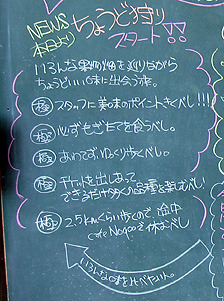 NEWS
本日より
ちょうど狩り
スタート!!
いろんな果物畑を巡りながら
ちょうどいい味に出会う旅。
極 スタッフに美味のポイントをきくべし!!!
極 必ずもぎたてを食うべし。
極 あわてずゆっくり歩くべし。
極 チケットを出しあって
できるだけ多くの品種を楽しむべし!
極 2.5kmくらい歩くので、途中
cafe で休むべし
いろんな味を比べたい。